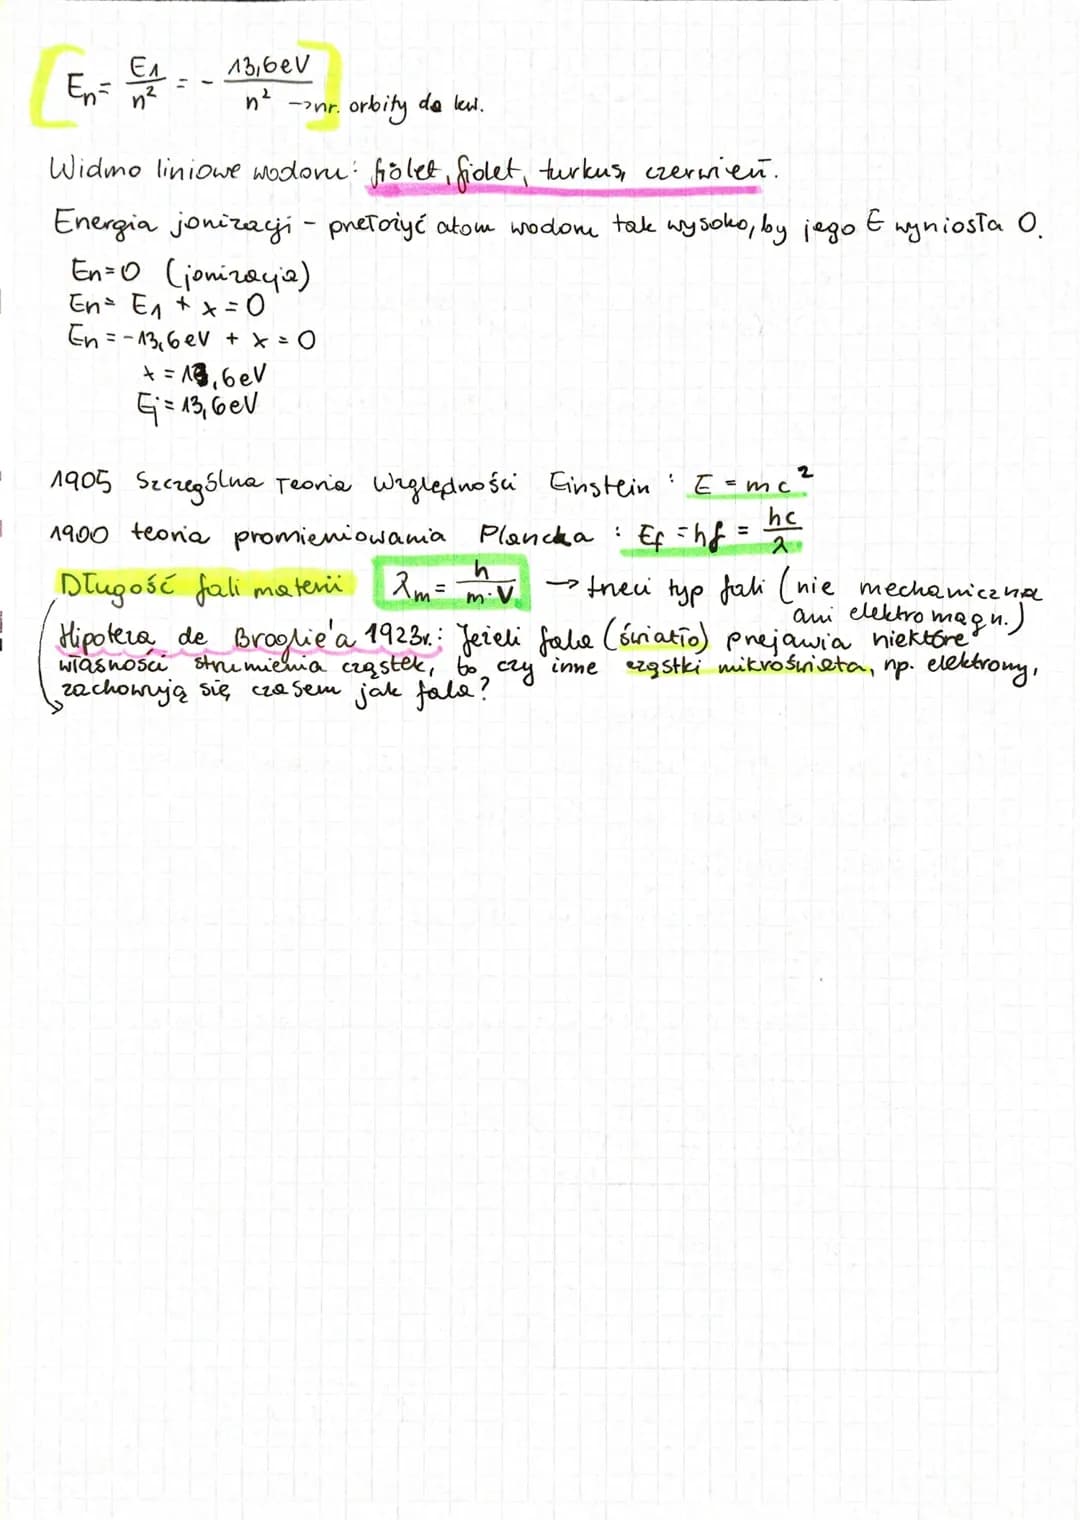 En = E1/n² = - 13,6eV/n² → nr. orbity do kw.
Widmo liniowe wodoru: fiolet, fiolet, turkus, czerwień.
Energia jonizacji - przełożyć atom wodoru tak wysoko, by jego E wyniosła 0.
En=0 (jonizacja)
En = E1 + x = 0
En = -13,6eV + x = 0
x = 13,6eV
Ej = 13,6eV
1905 Szczególna Teoria Względności Einstein : E = mc²
1900 teoria promieniowania Plancka : Ef = hf = hc/λ
Długość fali materii λm = h/m·V → trzeci typ fali (nie mechaniczna
ani elektromagn.)
Hipoteza de Broglie'a 1923r.: Jeżeli fala (światło) przejawia niektóre
własności strumienia cząstek, to czy inne cząstki mikroświata, np. elektrony,
zachowują się czasem jak fala?